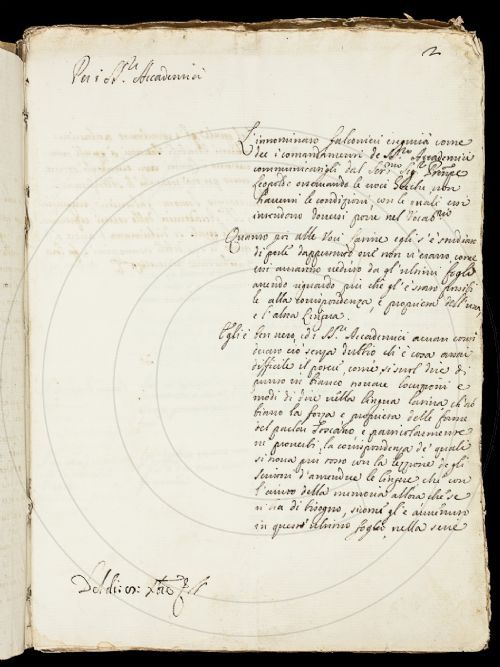 2
Per i SS.ri Accademici
L'innominato falconieri eseguirà come
dee i comandamenti de SS.ri Accademici
communicatigli dal Ser.mo Sig. Prnpe
Leopoldo le voci non
haverci le condizioni con le quali essi
intendono doversi porre nel Vocab.rio
Quanto poi alle Voci latine egli s'è studiato
di porle dappertutto ove non v'erano, come
essi avranno veduto da gl'ultimi fogli
avendo riguardo più che gl'è stato possibi
le alla corrispondenza, e proprietà dell'una,
e l'altra Lingua.
Egli è ben vero, ed i SS.ri Accademici avran consi
derato ciò senza dubbio ch'è cosa assai
difficile il porsi, come si suol dire di
punto in bianco trovare locuzioni e
modi di dire nella lingua latina ch'ab
biano la forza e proprietà delle forme
del parlar Toscano e particolarmente
ne proverbi, la corrispondenza de' quali
si trova più tosto con la lezzione de gli
scrittori d'amendue le lingue che con
l'aiuto della memoria allora che se
n'ha di bisogno, sicome gl'è avvenuto
in quest'ultimo foglio, nella serie